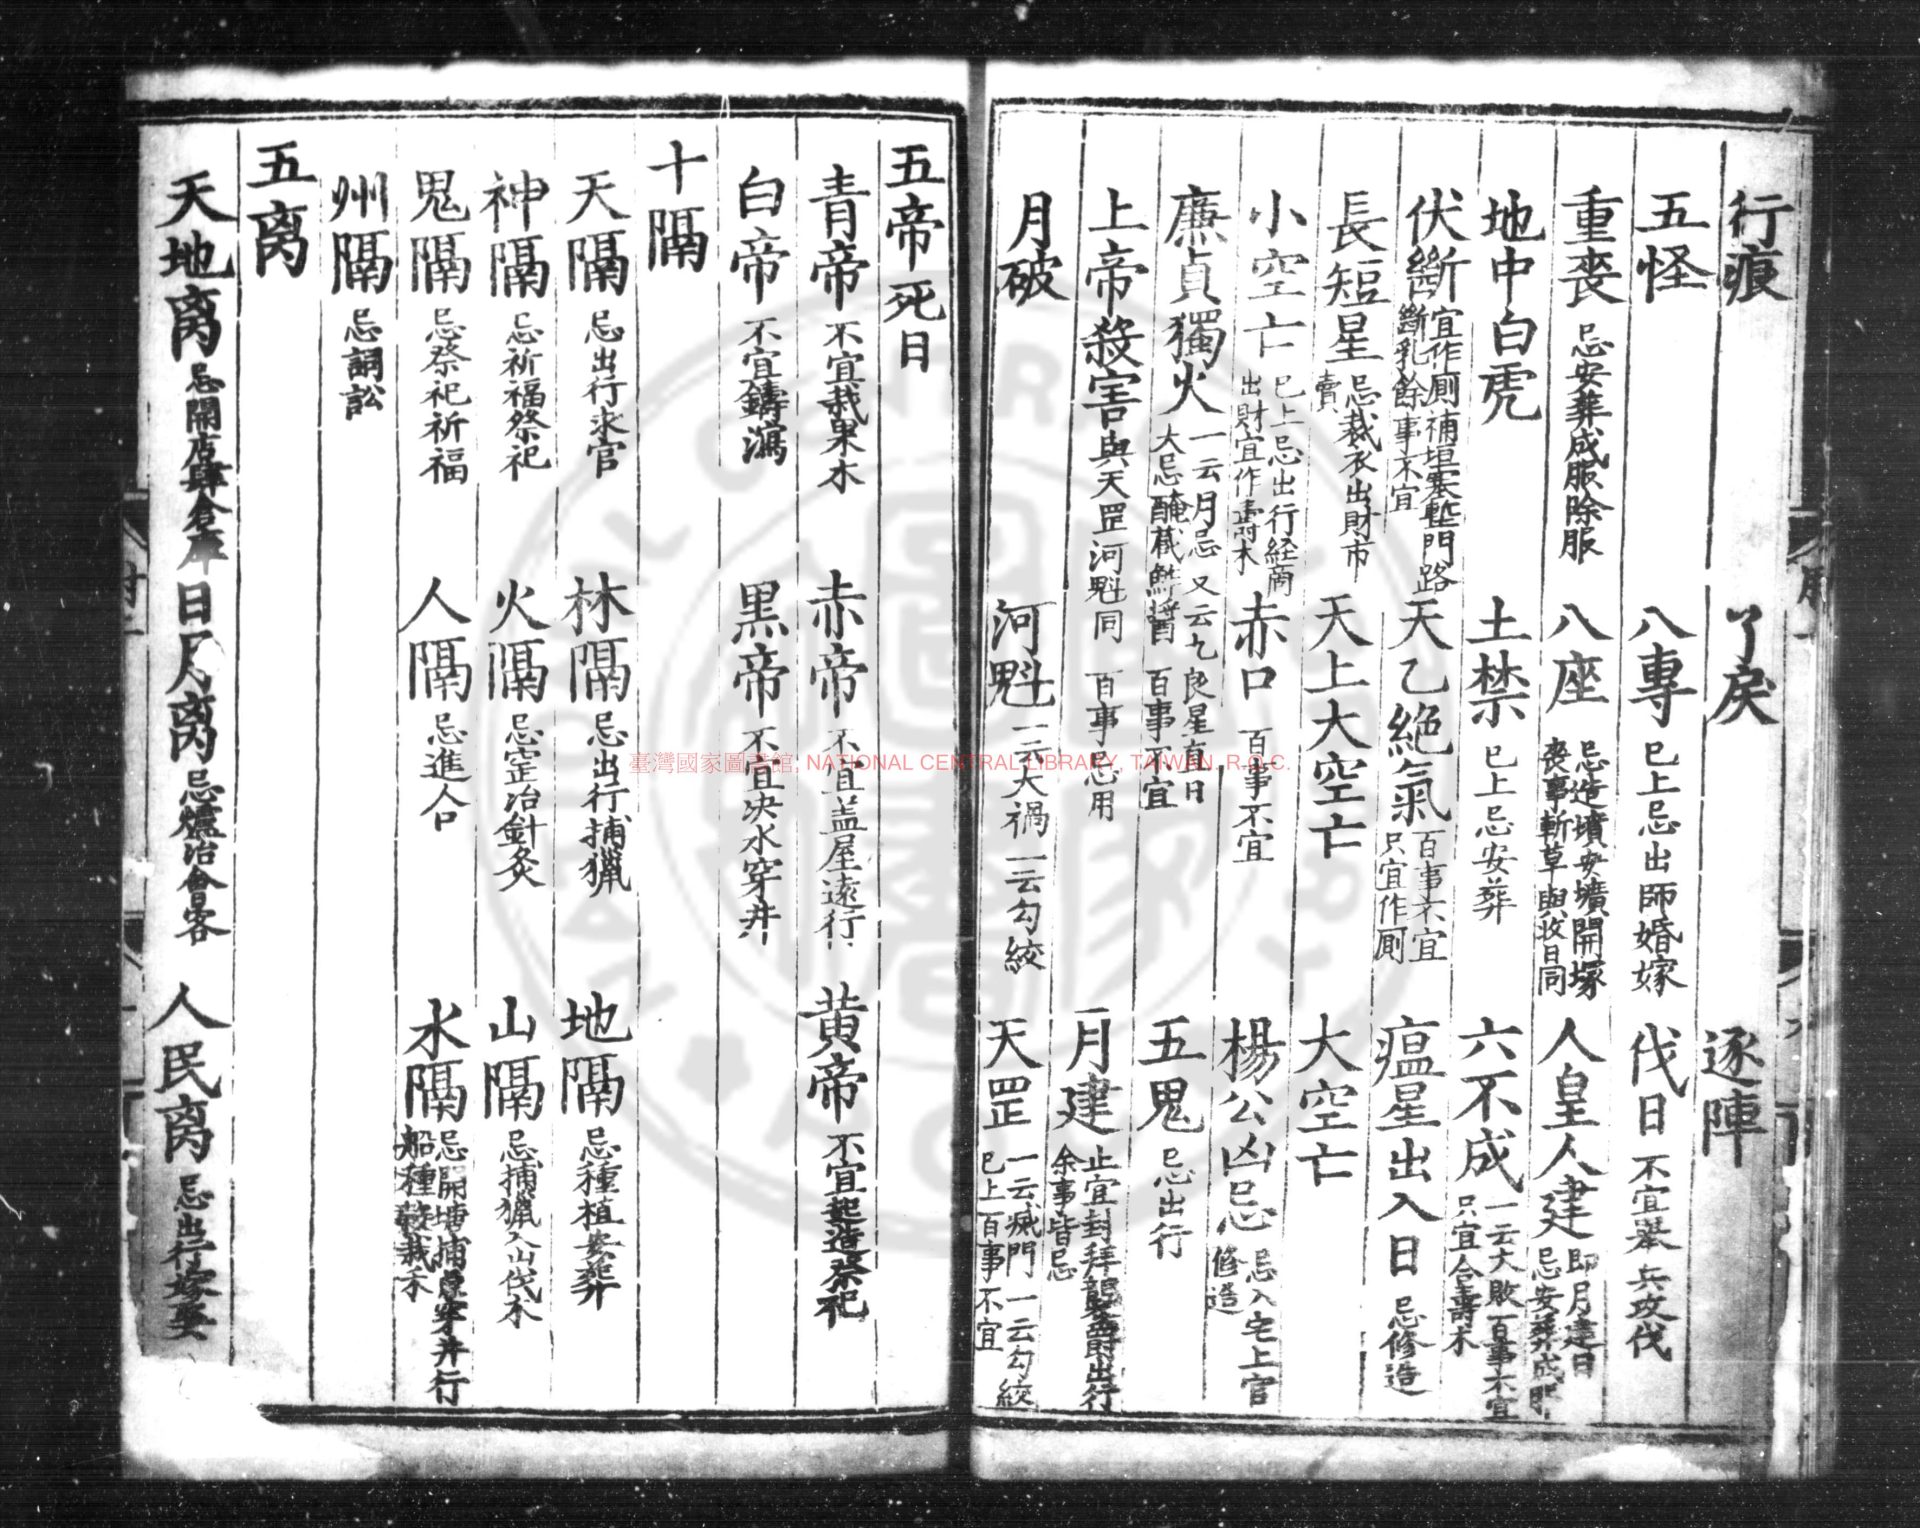 行痕　了戾　逐陣
五怪　八專　已上忌出師婚嫁　伐日　不宜舉兵攻伐
重喪　忌安葬成服除服　八座　忌造墳安壙開塚喪事斬草與收日同　人皇人建　即月建日忌安葬成服
地中白虎　土禁　已上忌安葬　六不成　一云大敗百事不宜只宜合壽木
伏斷　宜作厠補垣塞塹門路斷乳餘事不宜　天乙絶氣　百事不宜只宜作厠　瘟星出入日　忌修造
長短星　忌裁衣出財市賣　天上大空亡　大空亡
小空亡　已上忌出行経商出財宜作壽木　赤口　百事不宜　楊公凶忌　忌入宅上官修造
廉貞獨火　一云月忌又云九良星直日大忌醃藏鮓醬百事不宜　五鬼　忌出行
上帝殺害　與天罡河魁同　百事忌用　月建　止宜封拜襲爵出行余事皆忌
月破　河魁　一云大禍一云勾絞　天罡　一云滅門一云勾絞已上百事不宜
五帝死日
青帝　不宜栽果木　赤帝　不宜盖屋遠行　黄帝　不宜起造祭祀
白帝　不宜鑄瀉　黒帝　不宜决水穿井
十隔
天隔　忌出行求官　林隔　忌出行捕獵　地隔　忌種植安葬
神隔　忌祈福祭祀　火隔　忌窑冶針灸　山隔　忌捕獵入山伐木
鬼隔　忌祭祀祈福　人隔　忌進人口　水隔　忌開塘捕魚穿井行船種蒔栽禾
州隔　忌詞訟
五离
天地离　忌開店肆倉庫　日月离　忌爐冶會客　人民离　忌出行嫁娶
臺灣國家圖書館, NATIONAL CENTRAL LIBRARY, TAIWAN, R.O.C.